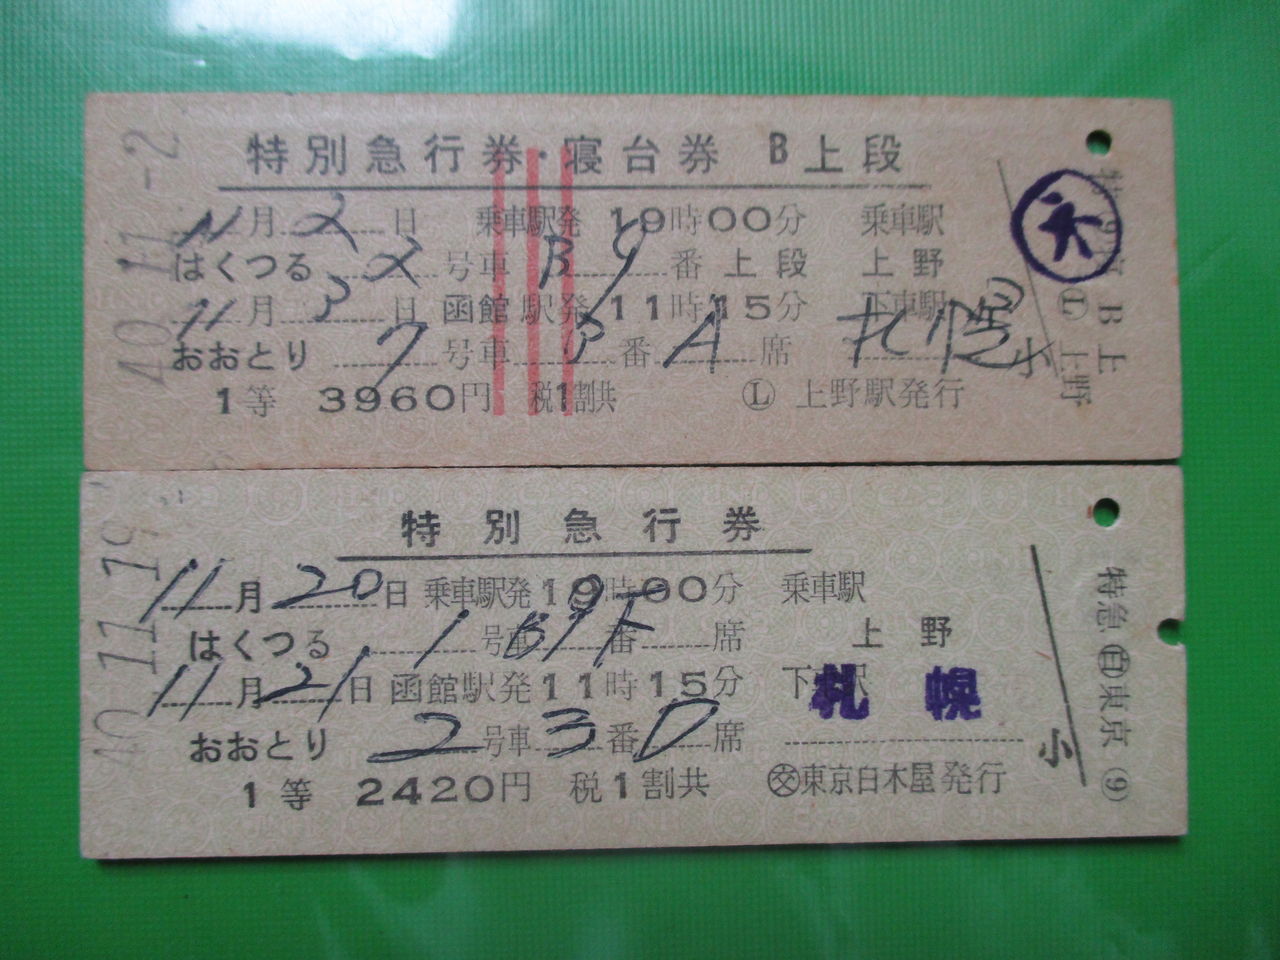 40.11.-2
特別急行券・寝台券 B上段
11月2日 乗車駅発 19時00分 乗車駅
はくつる 2号車 B9番上段 上野
11月3日 函館駅発 11時15分 下車駅
おおとり 7号車 3番A席 札幌
1等 3960円 税1割共 Ⓛ 上野駅発行
B上
Ⓛ 上野
40.11.19
特別急行券
11月20日 乗車駅発 19時00分 乗車駅
はくつる 1号車 B9下番 席 上野
11月21日 函館駅発 11時15分 下車駅
札幌
おおとり 2号車 3番D席
1等 2420円 税1割共 ㊋東京白木屋発行
小
特急 東京 (9)